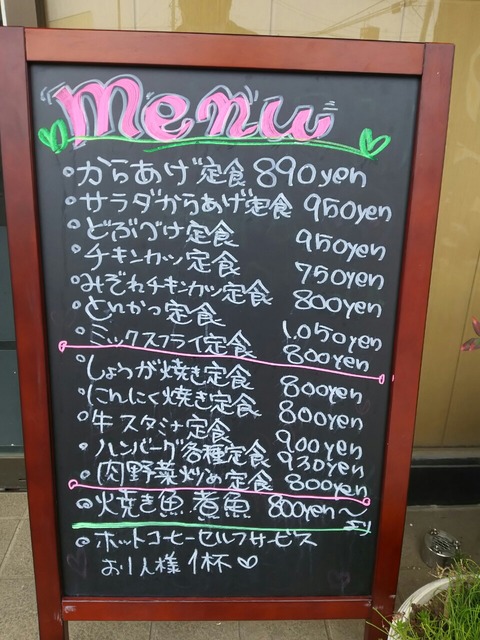 Menu
・からあげ定食 890yen
・サラダからあげ定食 950yen
・どぶづけ定食 950yen
・チキンカツ定食 750yen
・みぞれチキンカツ定食 800yen
・とんかつ定食 1,050yen
・ミックスフライ定食 800yen
・しょうが焼き定食 800yen
・にんにく焼き定食 800yen
・牛スタミナ定食 900yen
・ハンバーグ各種定食 930yen
・肉野菜炒め定食 800yen
・焼き魚 煮魚 800yen〜
より
・ホットコーヒーセルフサービス
お1人様 1杯♡